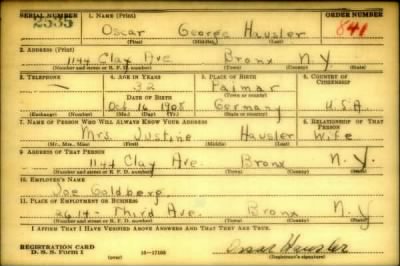 SERIAL NUMBER 1. NAME (Print) ORDER NUMBER
2535 Oscar George Hausler 841
(First) (Middle) (Last)
2. ADDRESS (Print)
1144 Clay Ave Bronx N.Y
(Number and street or R. F. D. number) (Town) (County) (State)
3. TELEPHONE 4. AGE IN YEARS 5. PLACE OF BIRTH 6. COUNTRY OF CITIZENSHIP
32 Kalmar
DATE OF BIRTH (Town or county)
Oct 16 1908 Germany U.S.A.
(Exchange) (Number) (Mo.) (Day) (Yr.) (State or country)
7. NAME OF PERSON WHO WILL ALWAYS KNOW YOUR ADDRESS 8. RELATIONSHIP OF THAT PERSON
Mrs. Justine Hausler Wife
(Mr., Mrs., Miss) (First) (Middle) (Last)
9. ADDRESS OF THAT PERSON
1144 Clay Ave. Bronx N.Y.
(Number and street or R. F. D. number) (Town) (County) (State)
10. EMPLOYER'S NAME
Joe Goldberg
11. PLACE OF EMPLOYMENT OR BUSINESS
3614 - Third Ave. Bronx N.Y
(Number and street or R. F. D. number) (Town) (County) (State)
I AFFIRM THAT I HAVE VERIFIED ABOVE ANSWERS AND THAT THEY ARE TRUE.
REGISTRATION CARD
D. S. S. FORM 1 16-17105 Oscar Hausler
(Registrant's signature)